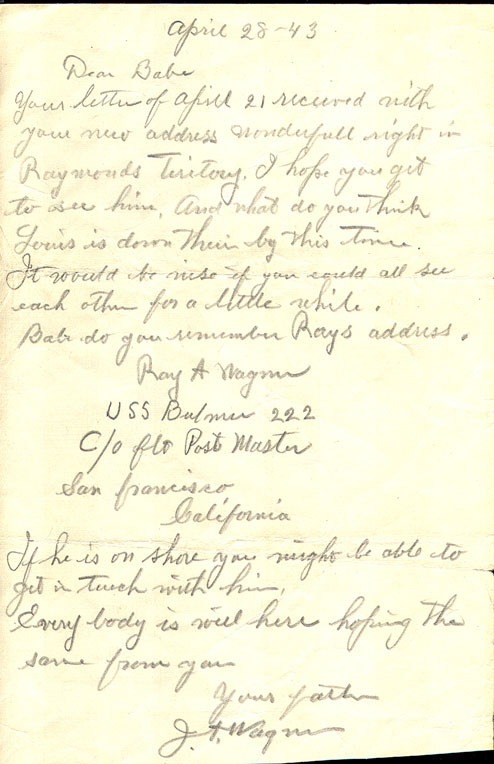 April 28-43
Dear Babe
Your letter of April 21 received with
your new address wonderfull right in
Raymonds Tiritory. I hope you get
to see him. And what do you think
Louis is down their by this time.
It would be nise if you could all see
each other for a little while.
Babe do you remember Rays address.
Ray A Wagner
USS Bulmer 222
C/o flt Post Master
San francisco
California
If he is on shore you might be able to
get in tuch with him,
Every body is well here hoping the
same from you
Your father
J. A. Wagner